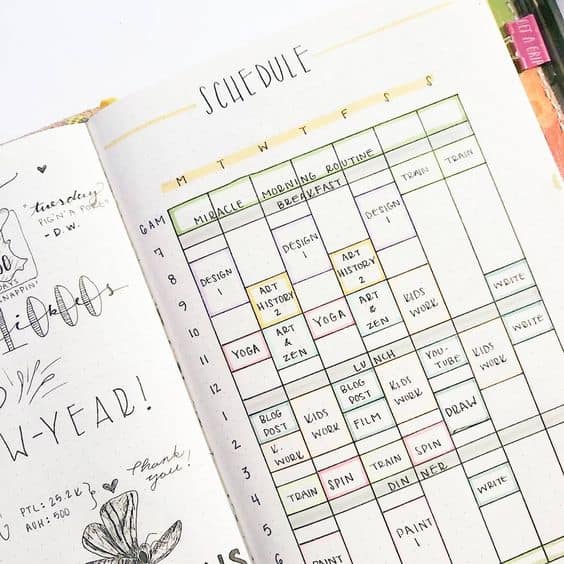 SCHEDULE
M T W T F S S
6AM MIRACLE MORNING ROUTINE
BREAKFAST
TRAIN TRAIN
7
DESIGN 1
DESIGN 1
8
DESIGN 1
ART HISTORY 2
ART HISTORY 2
9
KIDS WORK
WRITE
10
ART & ZEN
YOGA
ART & ZEN
11
YOGA
WRITE
LUNCH
YOU-TUBE
KIDS WORK
12
BLOG POST
KIDS WORK
1
BLOG POST
KIDS WORK
FILM
DRAW
2
K. WORK
SPIN
3
TRAIN
TRAIN
SPIN
DINNER
4
WRITE
5
PAINT 1
6
PAINT
tuesday
- D.W.
DAYS
NAPPIN'
1000s
W-YEAR!
Thank you!
PTL: 25.2K
AUH: 500
ET A GRIP